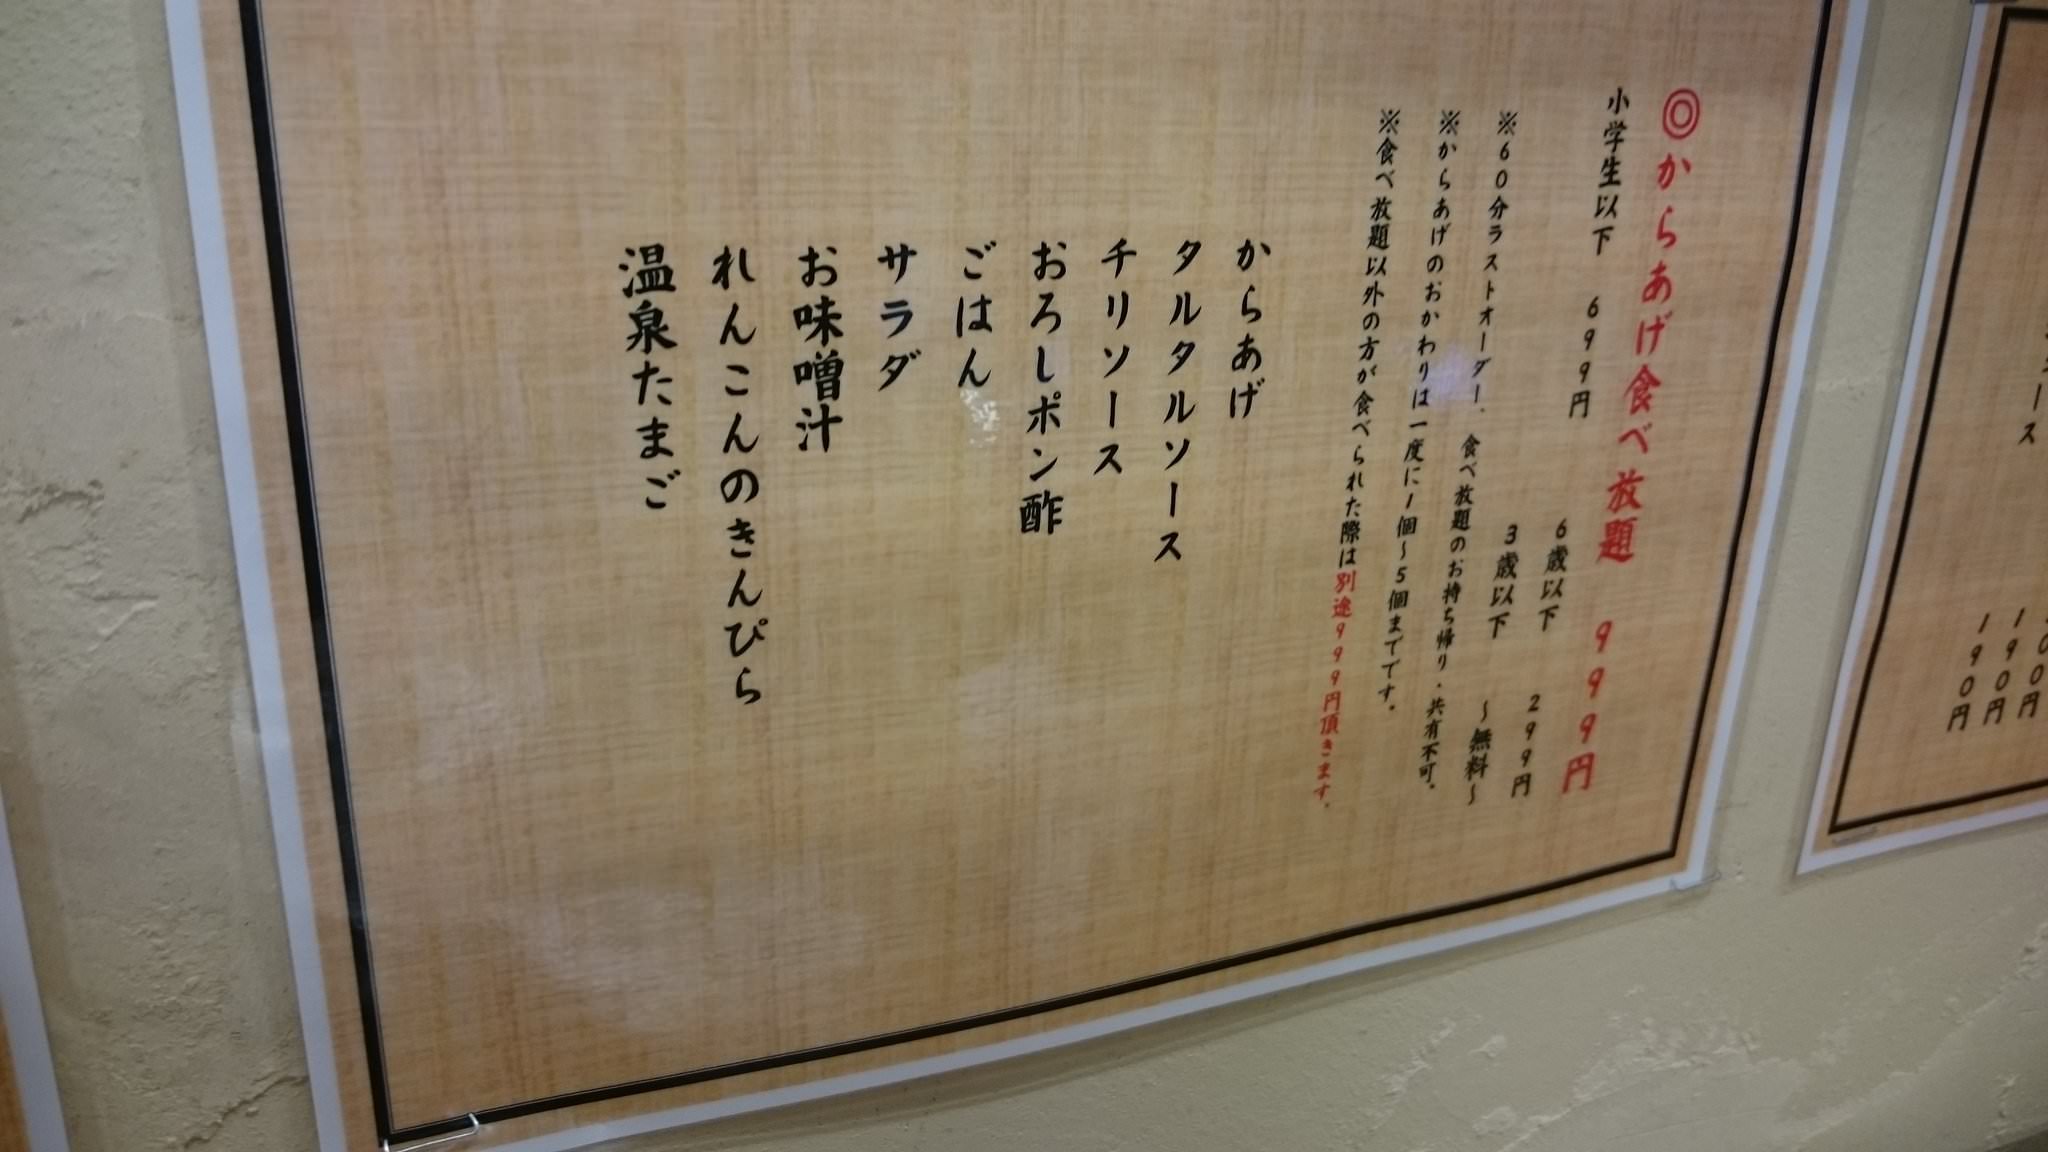 ◎からあげ食べ放題 999円
小学生以下 699円
6歳以下 299円
3歳以下 ～無料～
※60分ラストオーダー、食べ放題のお持ち帰り・共有不可。
※からあげのおかわりは一度に1個～5個までです。
※食べ放題以外の方が食べられた際は別途999円頂きます。
からあげ
タルタルソース
チリソース
おろしポン酢
ごはん
サラダ
お味噌汁
れんこんのきんぴら
温泉たまご
190円
190円